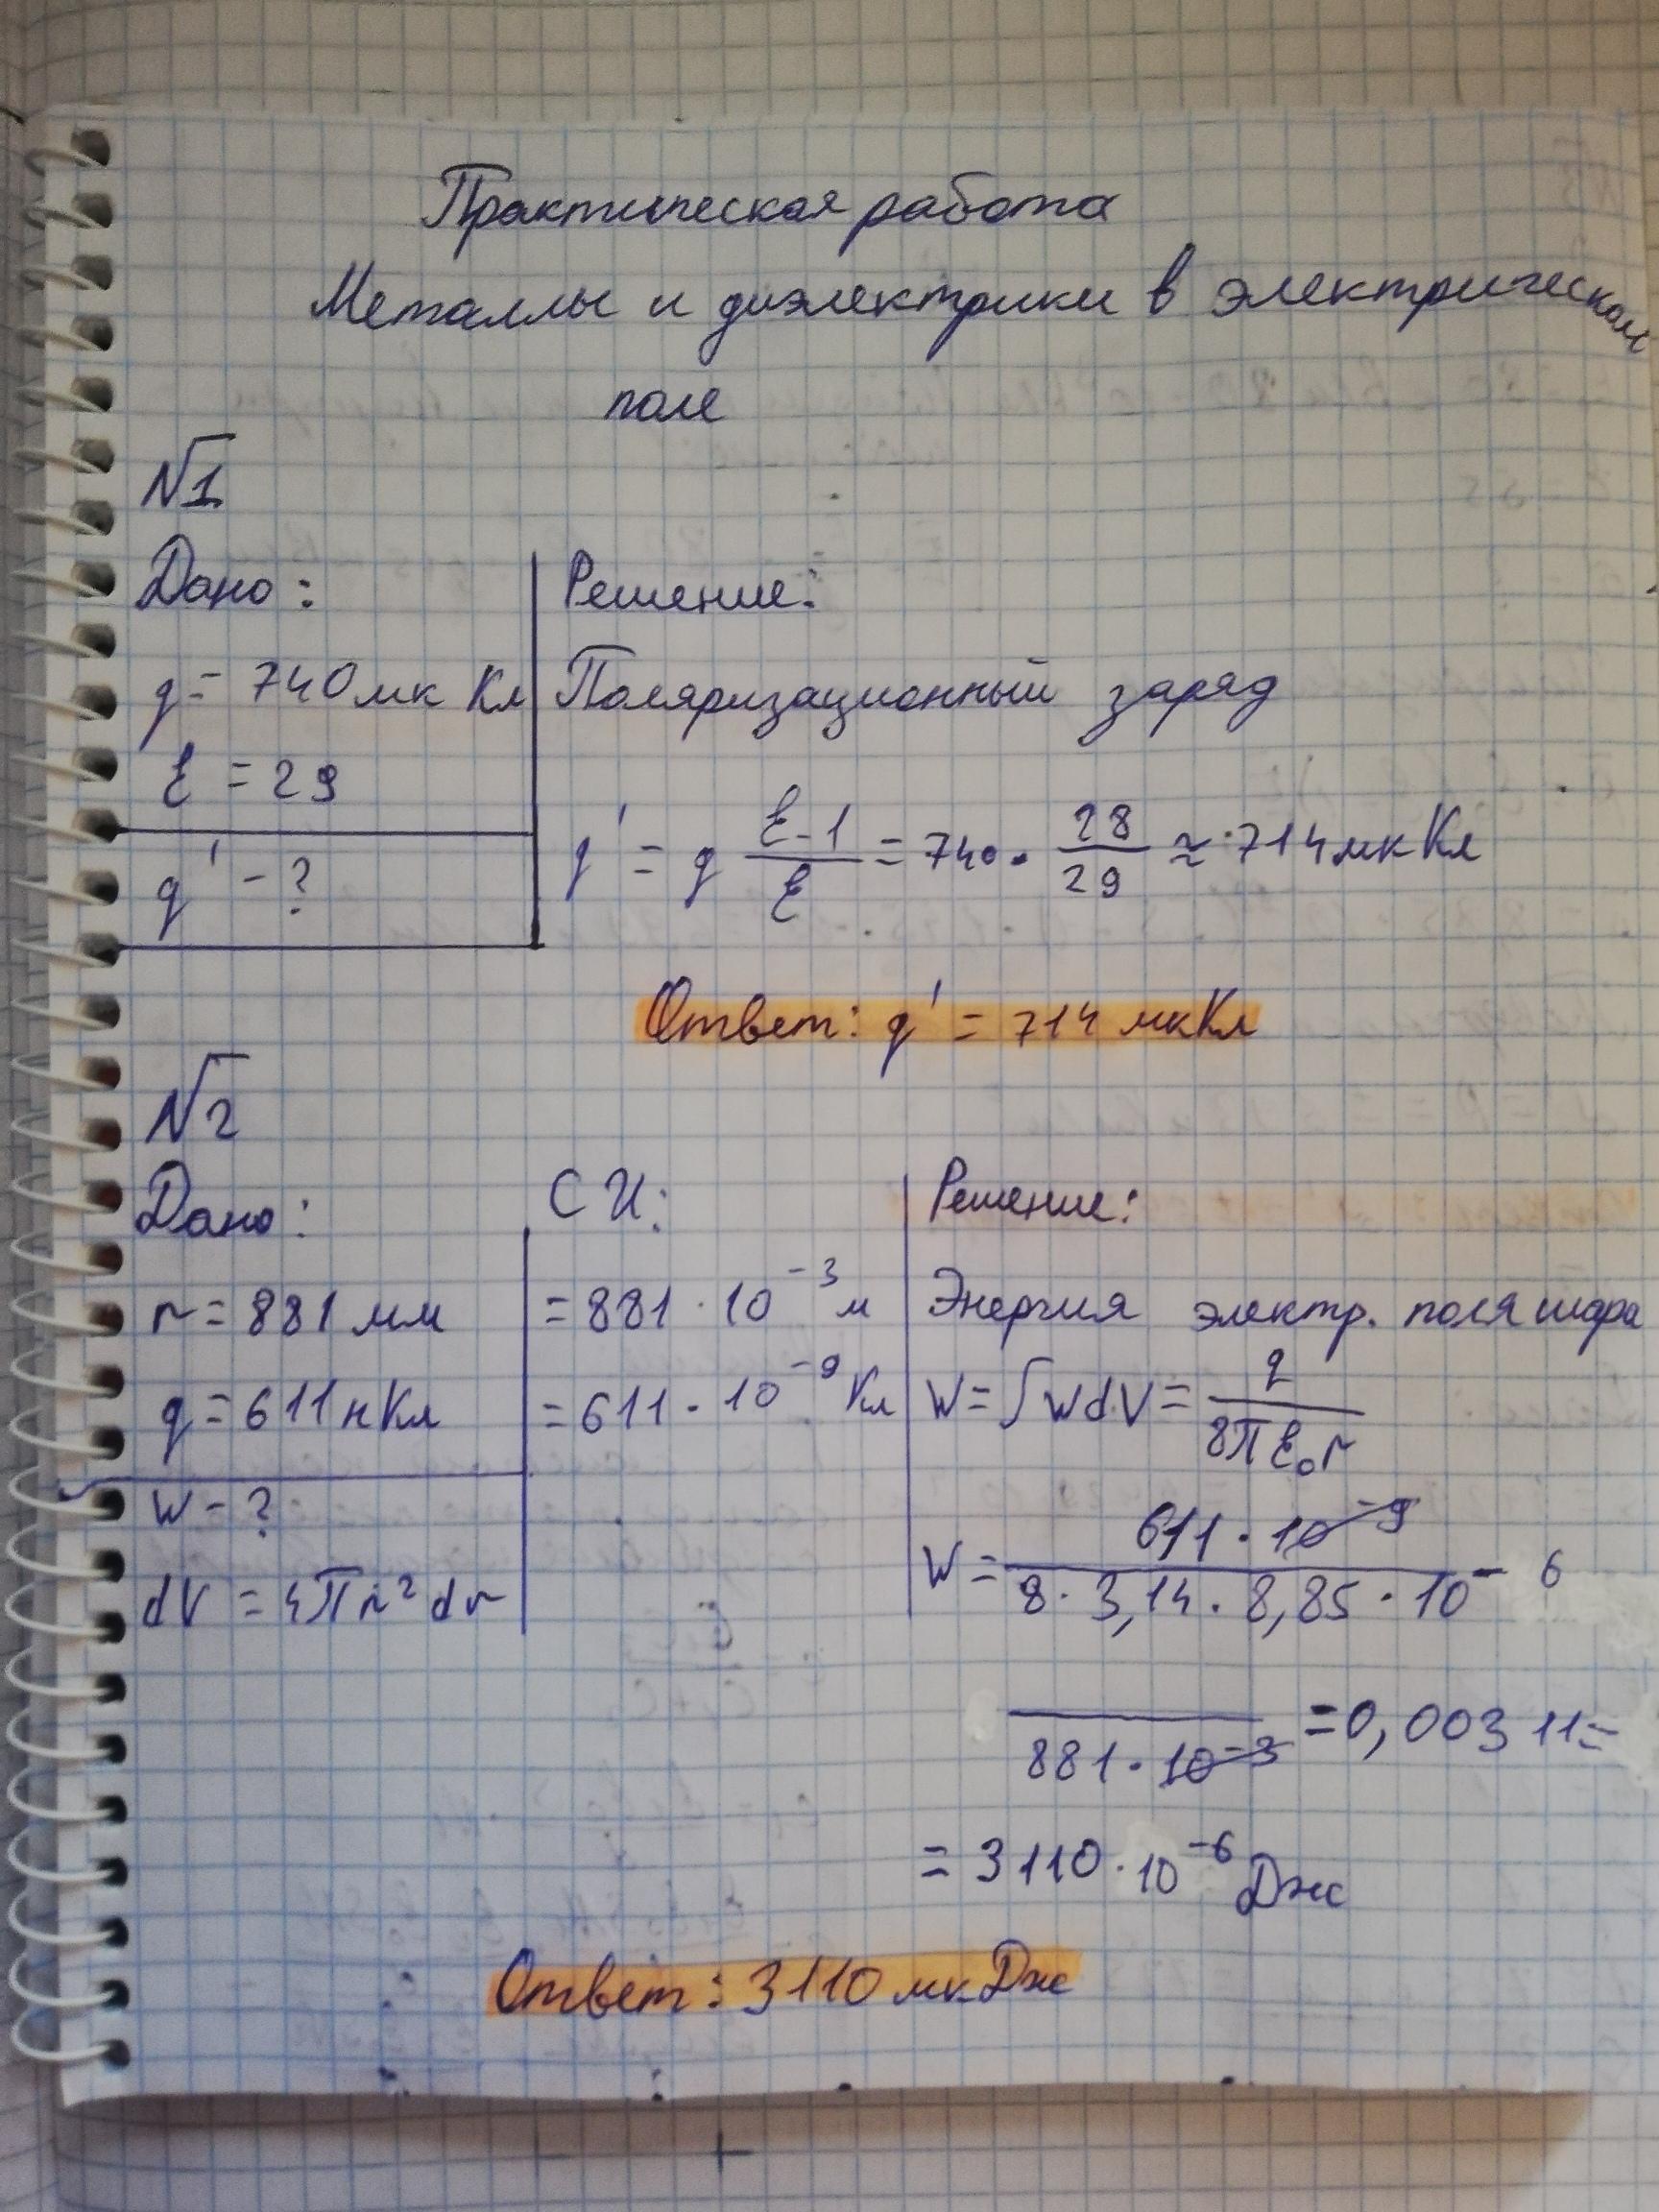 Практическая работа
Металлы и диэлектрики в электрическом
поле
№1
Дано:
q = 740 мк Кл
ε = 29
q' - ?
Решение:
Поляризационный заряд
q' = q (ε-1)/ε = 740 · 28/29 ≈ 714 мк Кл
Ответ: q' = 714 мкКл
№2
Дано:
r = 881 мм
q = 611 нКл
W - ?
dV = 4πr² dr
СИ:
= 881 · 10⁻³ м
= 611 · 10⁻⁹ Кл
Решение:
Энергия электр. поля шара
W = ∫ w dV = q / 8πε₀r
W = 611 · 10⁻⁹ / 8 · 3,14 · 8,85 · 10⁻⁶
/ 881 · 10⁻³ = 0,00311 =
= 3110 · 10⁻⁶ Дж
Ответ: 3110 мкДж